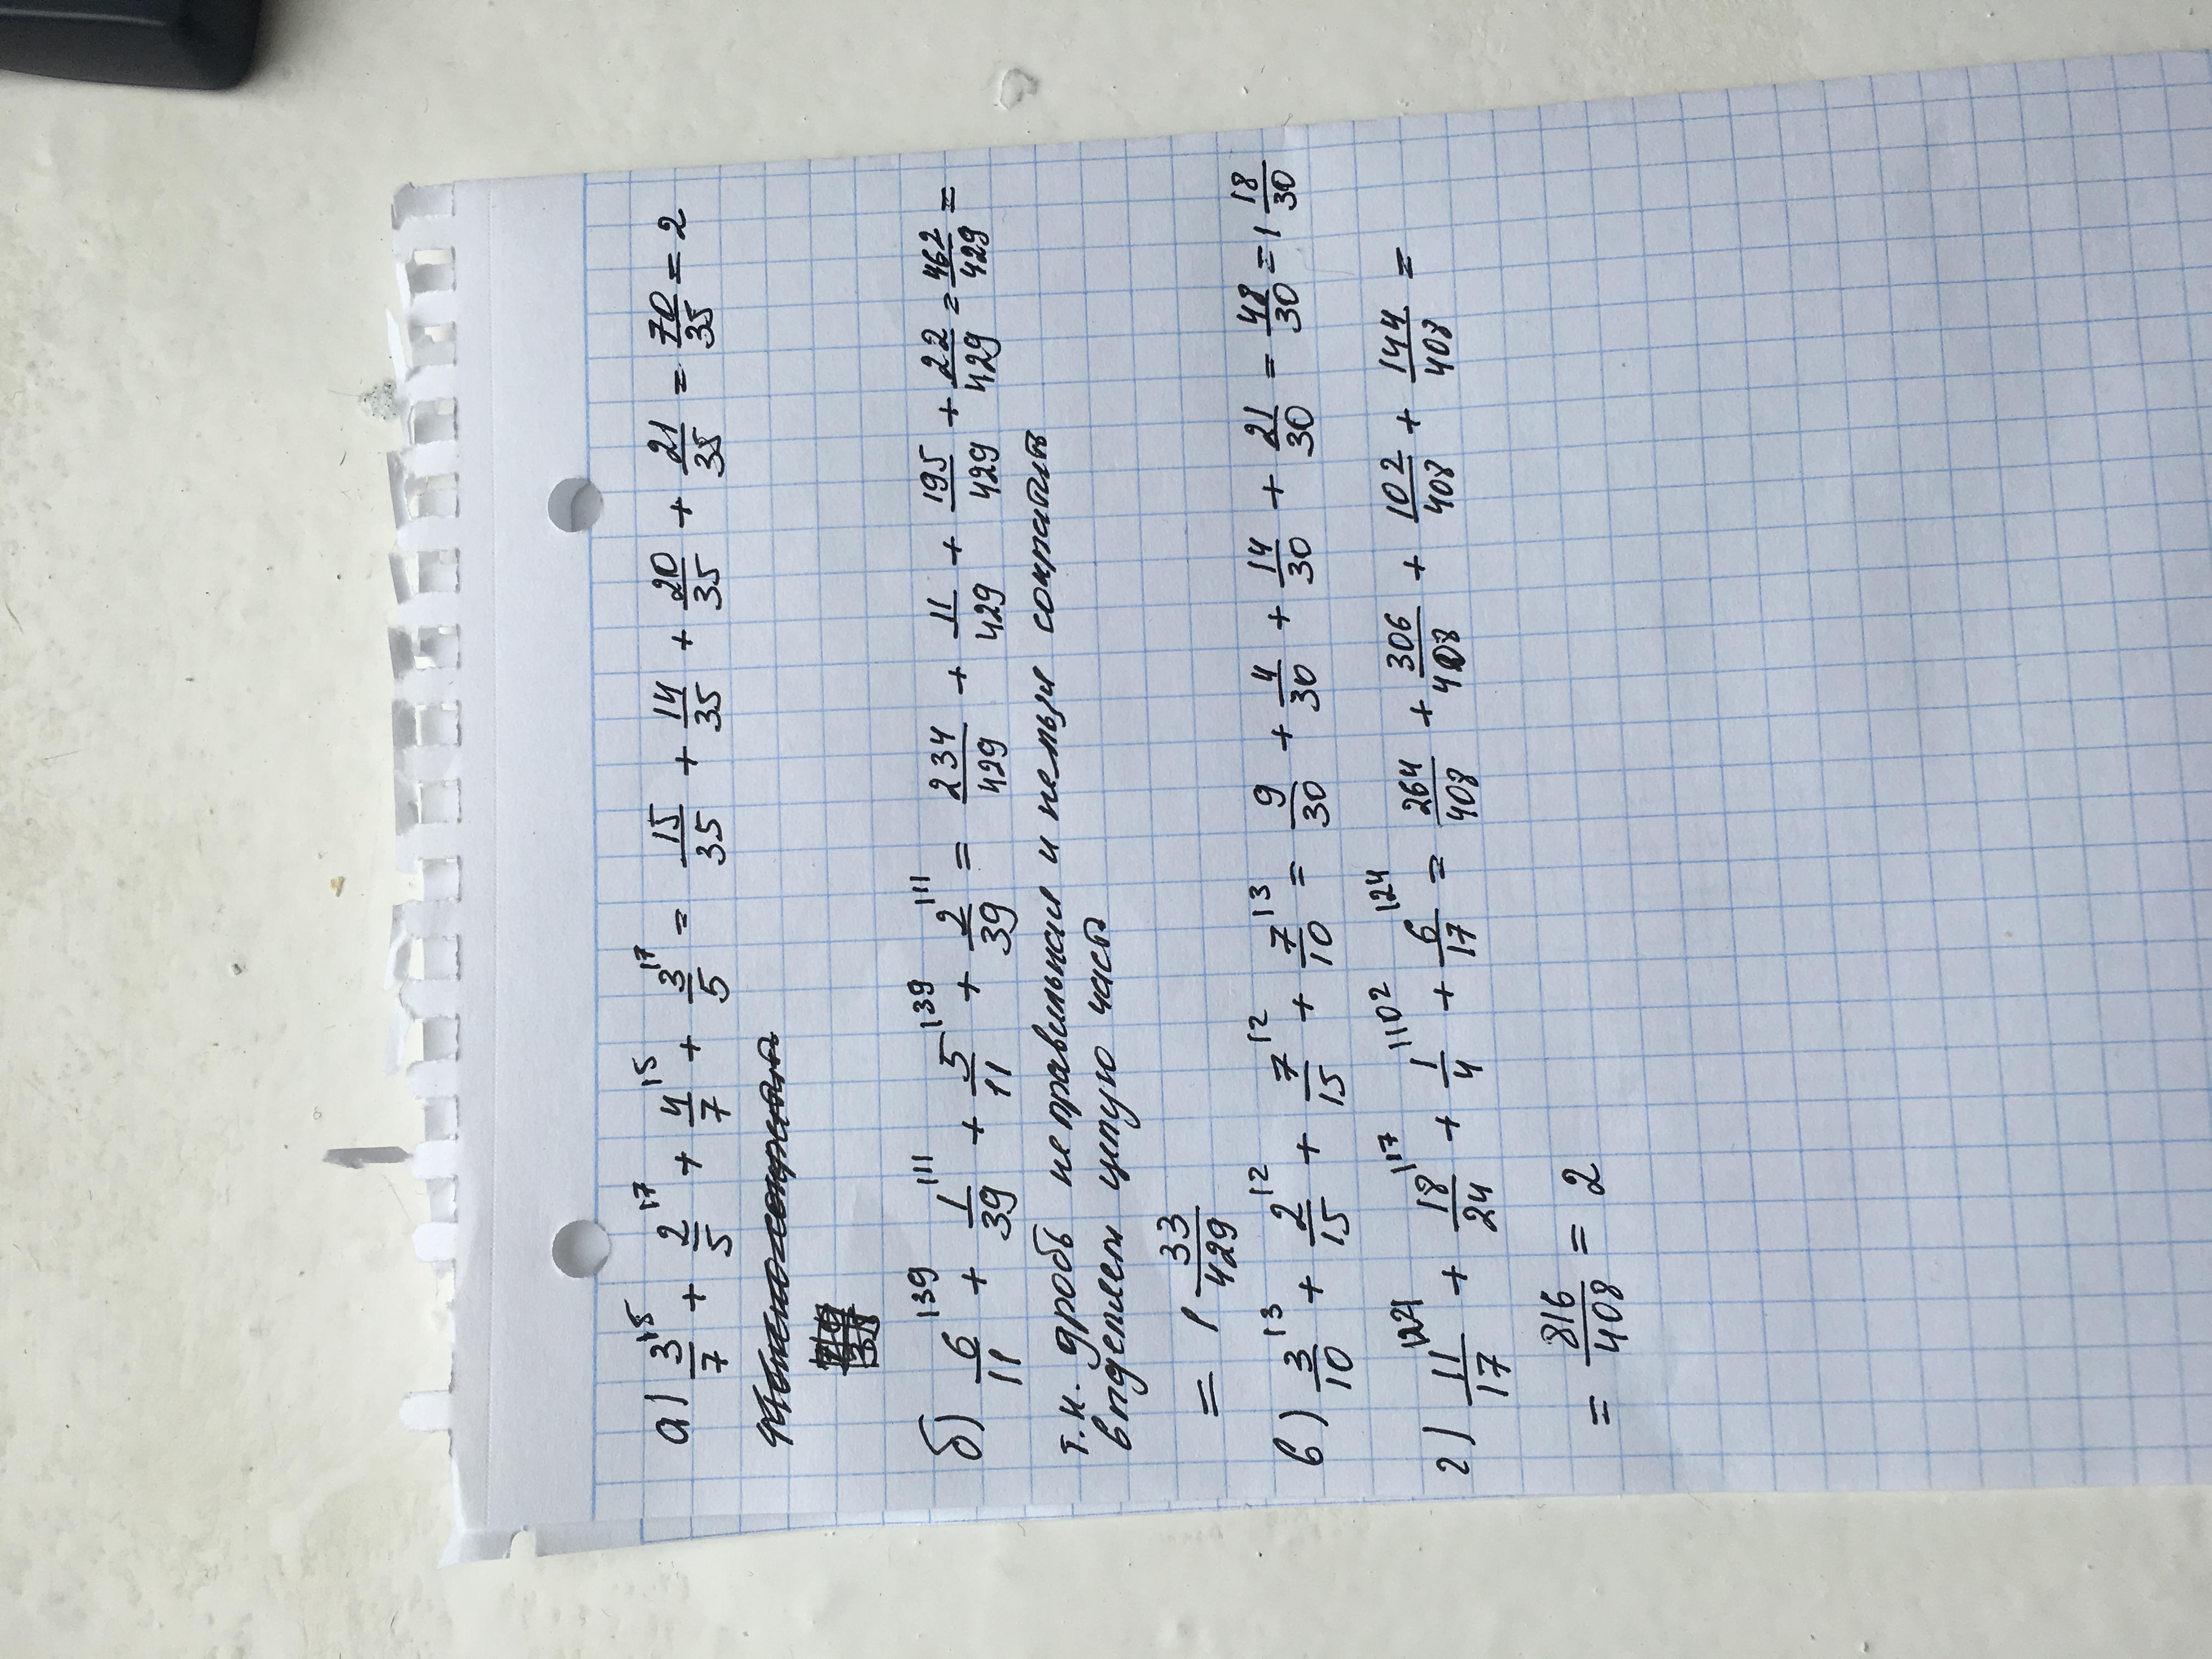 а) 3/7 |5 + 2/5 |7 + 4/7 |5 + 3/5 |7 = 15/35 + 14/35 + 20/35 + 21/35 = 70/35 = 2
б) 6/11 |39 + 1/39 |11 + 5/11 |39 + 2/39 |11 = 234/429 + 11/429 + 195/429 + 22/429 = 462/429 =
т.к. дробь не правильная и нельзя сократить
выделяем целую часть
= 1 33/429
в) 3/10 |3 + 2/15 |2 + 7/15 |2 + 7/10 |3 = 9/30 + 4/30 + 14/30 + 21/30 = 48/30 = 1 18/30
г) 11/17 |24 + 18/24 |17 + 1/4 |102 + 6/17 |24 = 264/408 + 306/408 + 102/408 + 144/408 =
= 816/408 = 2